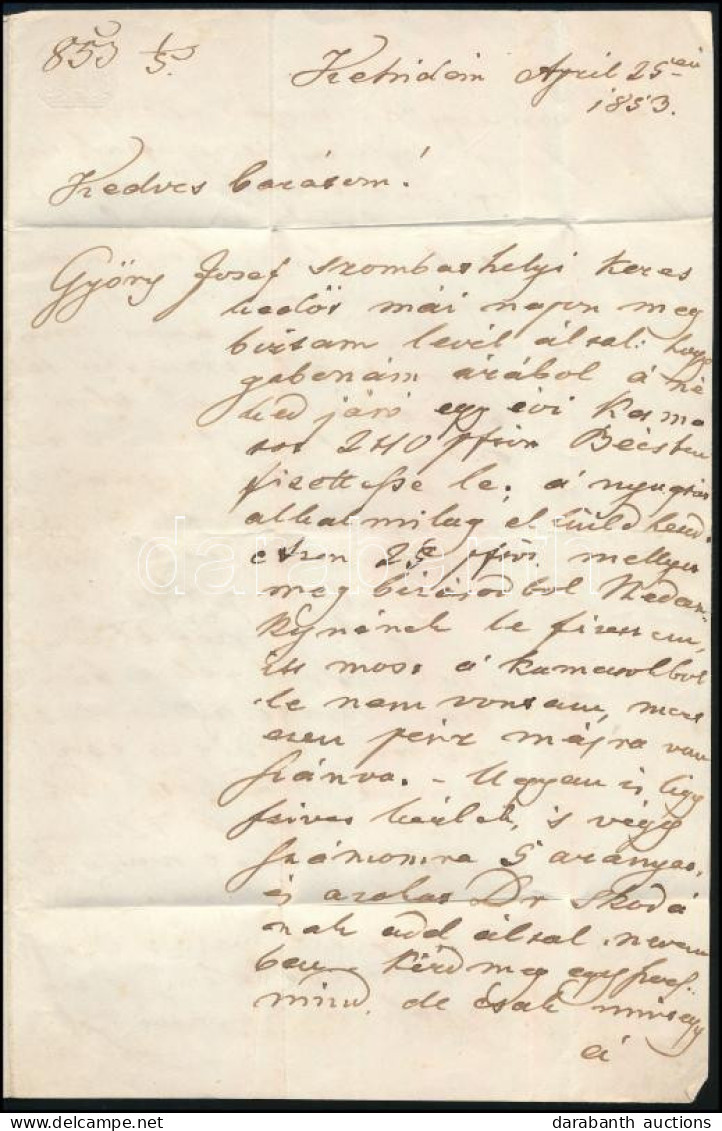 853 1/5.
Hetvidein April 25
1853.
Kedves barátom!
Györy Josef szombathelyi keres
kedöt mái napon meg
biztam levél által: hogy
gabonám arából á né
ked járó egy évi kama
tot 240 pfrt Bécsben
fizettesse le; á nyugtát
alkalmilag el küldhend.
etzen 25 pfrt. mellyet
meg bizásodbol
kynének le fizettem,
itt most á kamatokbol
le nem vontam, mert
ezen pénz másra van
szánva. – Ugyan is így
szives kérlek, is végy
számomra 5 aranyat,
és azokat Dr Skodá
nak add által nevem
ben – kérd meg egyszers
mind, de csak mint egy
á
darabanth
darabanth auctions